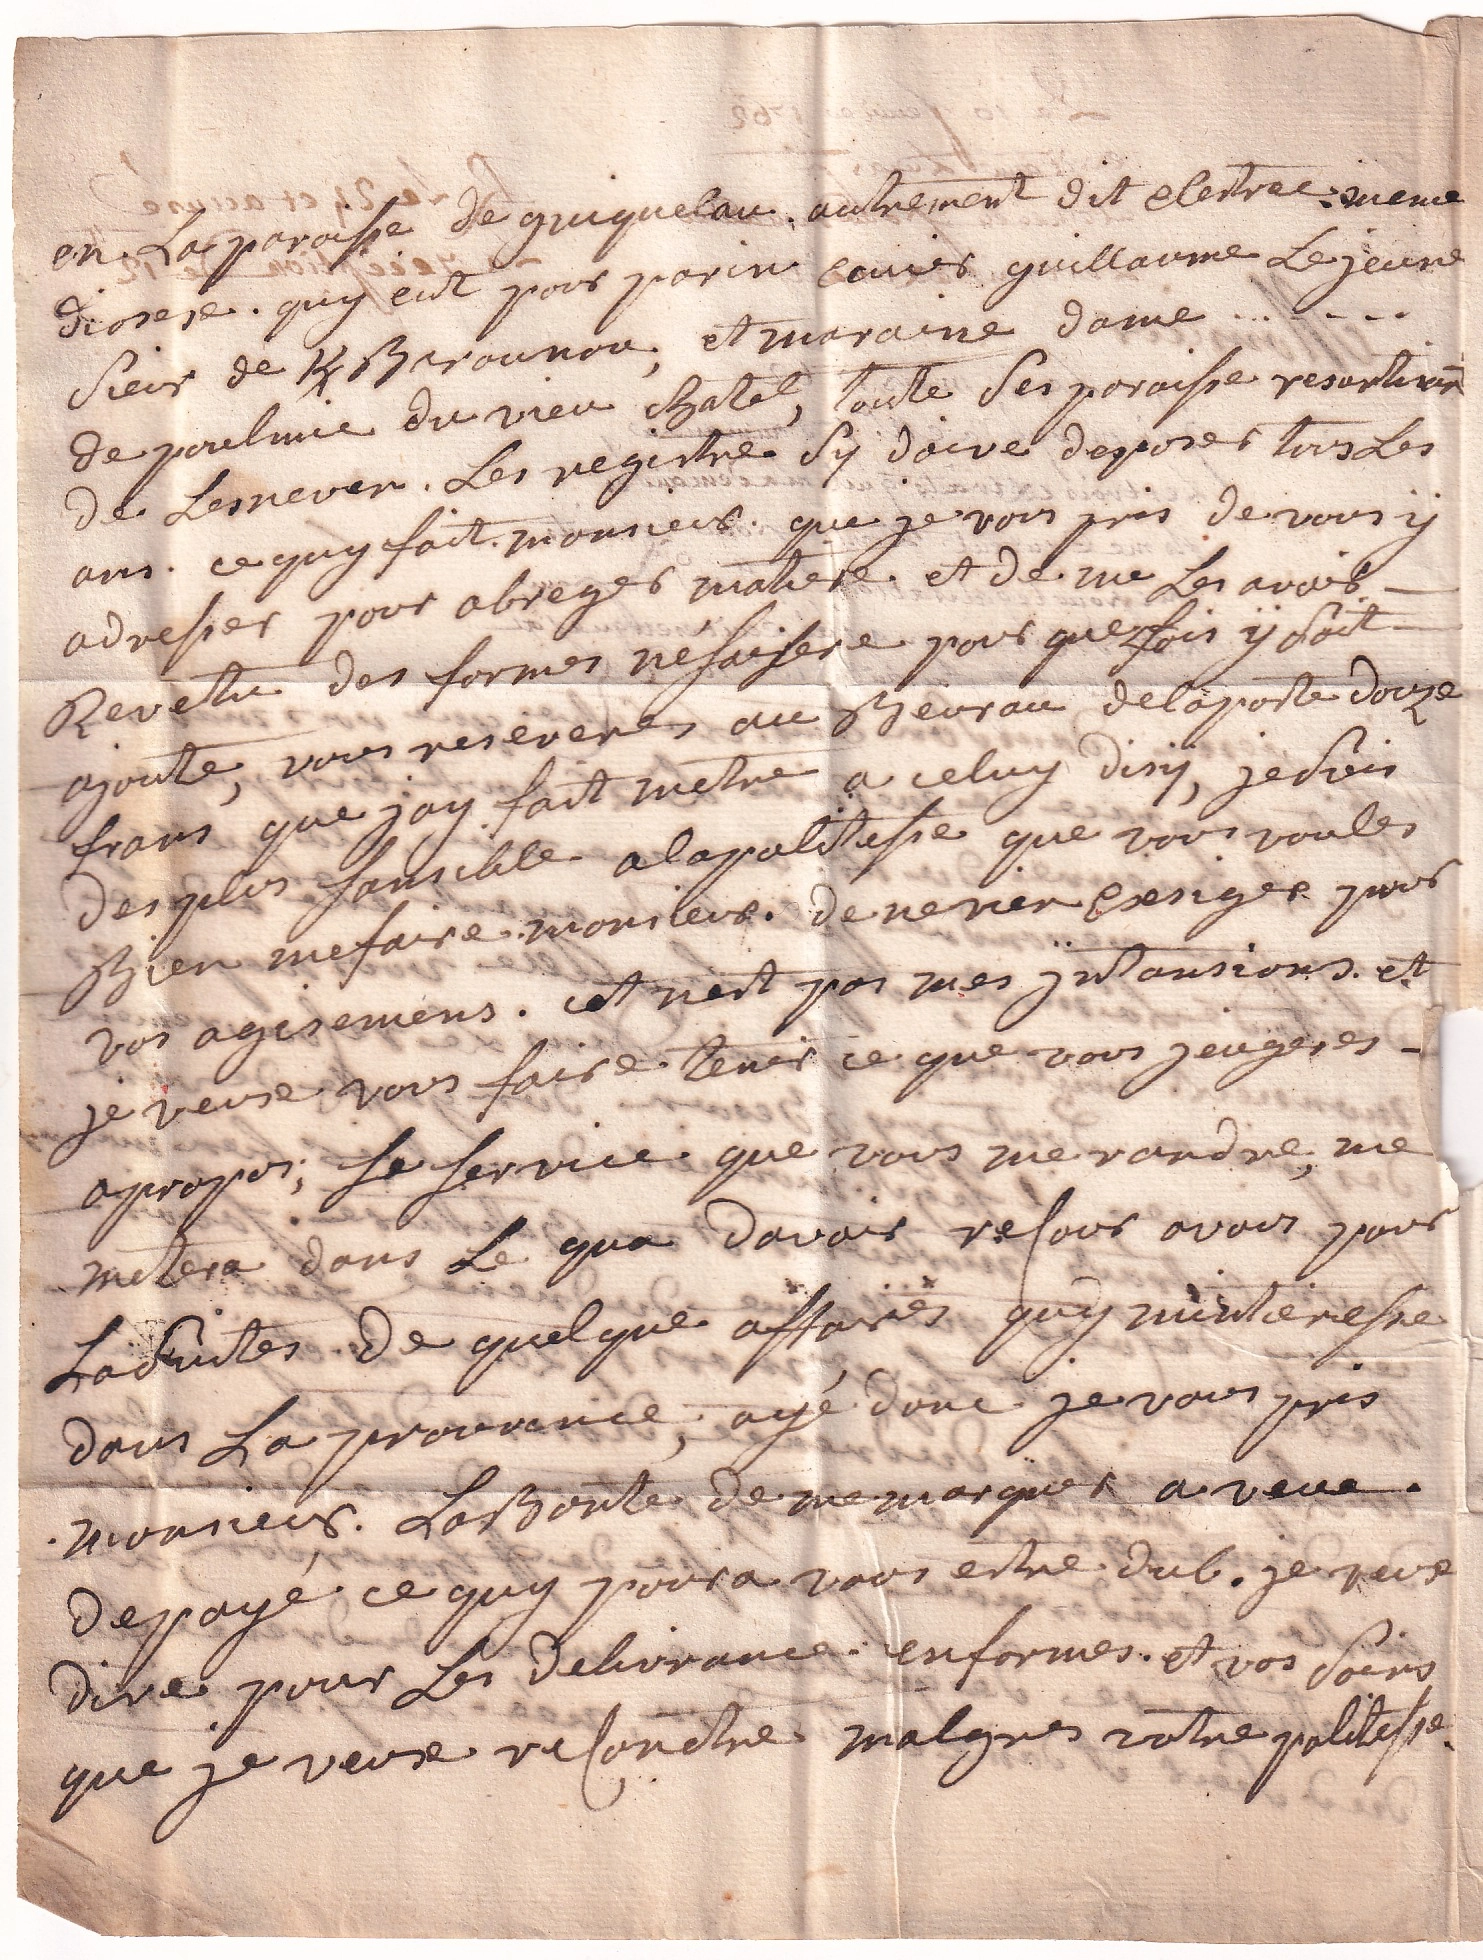 en La paroisse de guiquelau. autrement dit elestrec. meme
diosese. quy eut pour parin ecuier guillaume Le jeune
sieur de Kbrounou, et maraine dame ... - - -
de poulmic du vieu chatel, toute ses paroisse resortisan
de Lesneven. Les registre sy doive deposer tous Les
ans. ce quy fait. monsieur. que je vous pris de vous y
adresser pour abreger matiere. et de me Les avoir -
Revetu des formes nésaissere pour que fois y soit -
ajoute, vous reseveres au Beurau de la poste douze
frans que jay fait metre a celuy disy, je suis
des plus sansible a la politesse que vous voules
Bien me faire. monsieur. de ne rien exsiger pour
vos agisemens. cet nest pas mes jntansions. et
je veuse vous faire tenir ce que vous jeugeres -
apropos, se service que vous me randre, me
metera dans Le qua davoir recour avous pour
La suites de quelque affaires quy minteresse
dans La provance, ayé donc je vous pris
monsieur. La Bonte de me marquer a veue.
depayé ce quy poura vous estre dub. je veuse
dire pour Les delivrance. enformes. et vos soins
que je veuse reconetre malgres votre politesse.